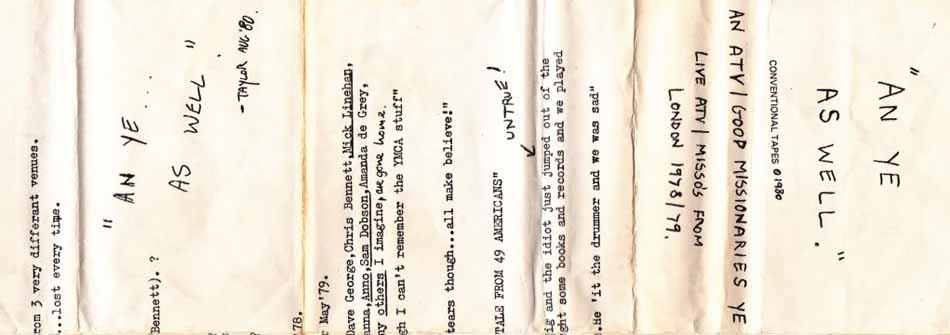 rom 3 very differant venues.
...lost every time.
"AN YE ...
AS WELL"
- TAYLOR AUG '80.
Bennett).?
78.
May'79.
Dave George,Chris Bennett,Mick Linehan,
anna,Anno,Sam Dobson,Amanda de Grey,
ny others I imagine, are gone home.
gh I can't remember the YMCA stuff"
tears though...all make believe!"
UNTRUE!
TALE FROM 49 AMERICANS"
ig and the idiot just jumped out of the
ght some books and records and we played
.He 'it the drummer and we was sad"
"AN YE
AS WELL."
CONVENTIONAL TAPES © 1980
AN ATV/GOOD MISSIONARIES YE
LIVE ATV/MISSOS FROM
LONDON 1978/79.